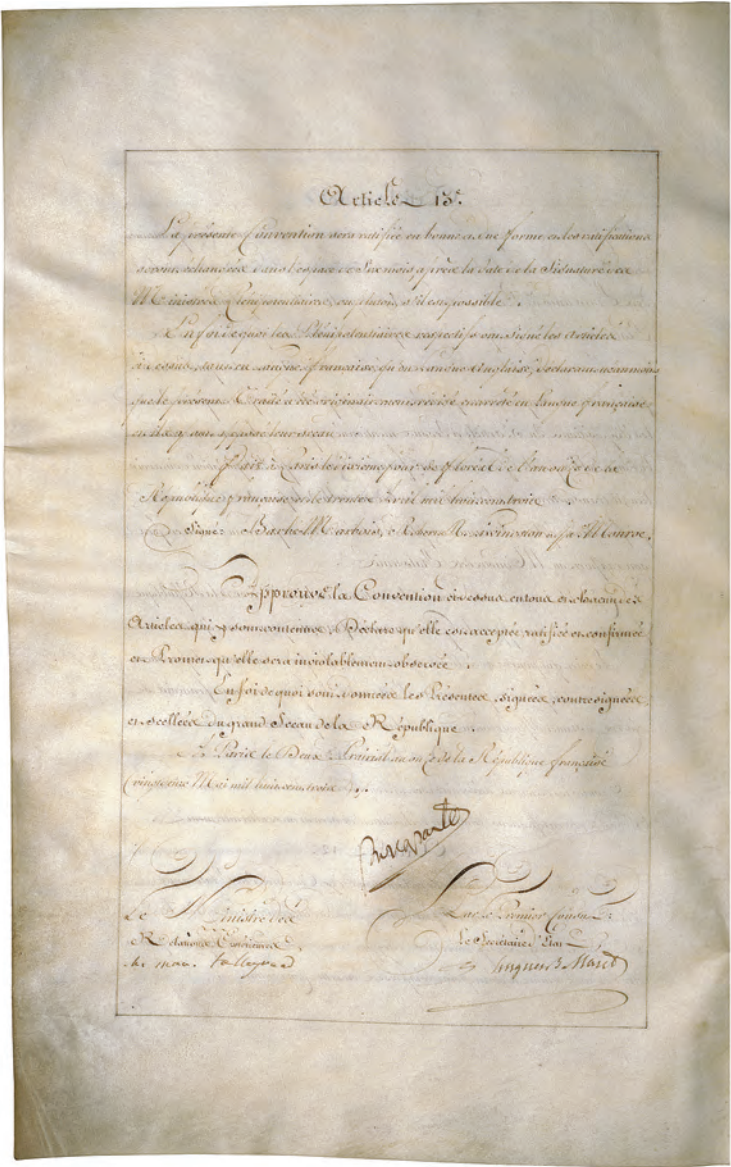 Article 13e.
La présente Convention sera ratifiée en bonne et due forme et les ratifications
seront échangées dans l'espace de Six mois après la date de la Signature des
Ministres Plénipotentiaires, ou plutôt, s'il est possible.
En foi de quoi les Plénipotentiaires respectifs ont Signé les Articles
ci dessus, tant en langue française, qu'en langue anglaise, déclarant néanmoins
que le présent Traité a été originairement rédigé et arrêté en langue française
et ils y ont apposé leur Sceau.
Fait à Paris le dixième jour de floréal de l'an onze de la
République française et le trente Avril mil huit cent trois.
Signé: Barbé Marbois, Robert R. Livingston et Ja. Monroe.
Approuve la Convention ci dessus en tous et chacun des
Articles qui y sont contenus, Déclare qu'elle est acceptée ratifiée et confirmée
et Promet qu'elle sera inviolablement observée.
En foi de quoi sont données les Présentes, signées, contresignées
et scellées du grand Sceau de la République.
à Paris le Deux Prairial an onze de la République française
(vingt deux Mai mil huit cent trois).
Bonaparte
Le Ministre des
Relations Extérieures,
ch. mau. talleyrand
Par le Premier Consul:
Le Secrétaire d'Etat,
hugues B. Maret